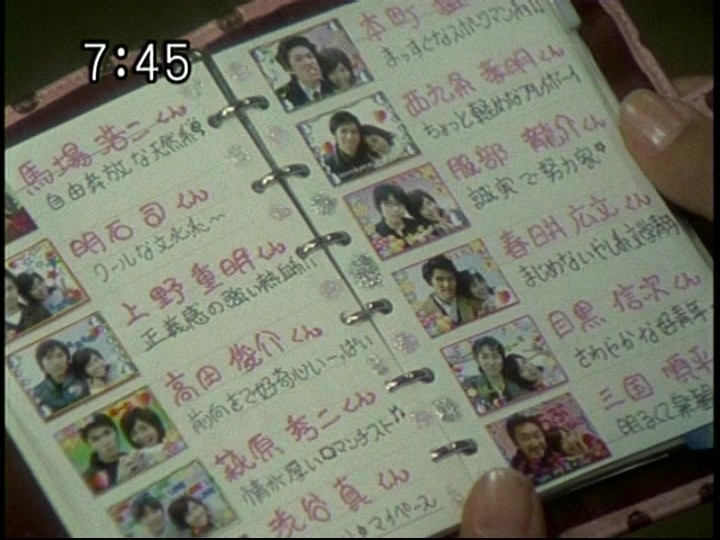 7:45
馬場 浩二くん
自由奔放な天然純
明石 司くん
クールな文化系〜
上野 重明くん
正義感の強い熱血
高田 俊介くん
前向きで好奇心いっぱい
萩原 秀二くん
情が厚いロマンチスト
渋谷 真くん
マイペース
本町
まっすぐなスポーツマン
西九条 孝明くん
ちょっと軽めなプレイボーイ
服部 龍介くん
誠実で努力家
春日井 広文くん
まじめないやし系文学青年
目黒 信次くん
さわやかな好青年
三国 順平
明るくて